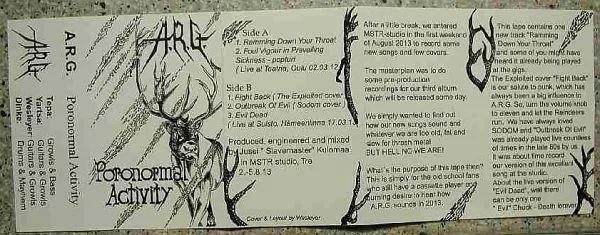 A.R.G.
A.R.G.
Poronormal Activity
Tepa: Growls & Bass
Yartsa: Guitars & Growls
Wesleyer: Guitars & Growls
Dinke: Drums & Mayhem
A.R.G.
Poronormal
Activity
Side A
1. Ramming Down Your Throat
2. Foul Vigour in Prevailing
Sickness - popturi
( Live at Teatria, Oulu 02.03.12
Side B
1. Fight Back ( The Exploited cover
2. Outbreak Of Evil ( Sodom cover )
3. Evil Dead
( Live at Suisto, Hämeenlinna 17.03.1
Produced, engineered and mixed
by Jussi " Slavemaster" Kulomaa
in MSTR studio, Tre
2.-5.8.13
Cover & Layout by Wesleyer
After a little break, we entered
MSTR-studio in the first weekend
of August 2013 to record some
new songs and few covers.
The masterplan was to do
some pre-production
recordings for our third album
which will be released some day.
We simply wanted to find out
how our new songs sound and
whatever we are too old, fat and
slow for thrash metal
BUT HELL NO WE ARE!
What´s the purpose of this tape then?
This is simply for the old school fans
who still have a cassette player and
burning desire to hear how the
A.R.G. sounds in 2013.
This tape contains one
new track "Ramming
Down Your Throat"
and some of you might have
heard it already being played
at the gigs.
The Exploited cover "Fight Back"
is our salute to punk, which has
always been a big influence to
A.R.G. So, turn the volume knob
to eleven and let the Reindeers
run. We have always loved
SODOM and "Outbreak Of Evil"
was already played live countless
of times in the late 80s by us.
It was about time record
our version of this excellent
song at the studio.
About the live version of
"Evil Dead", well there
can be only one
" Evil" Chuck - Death forever